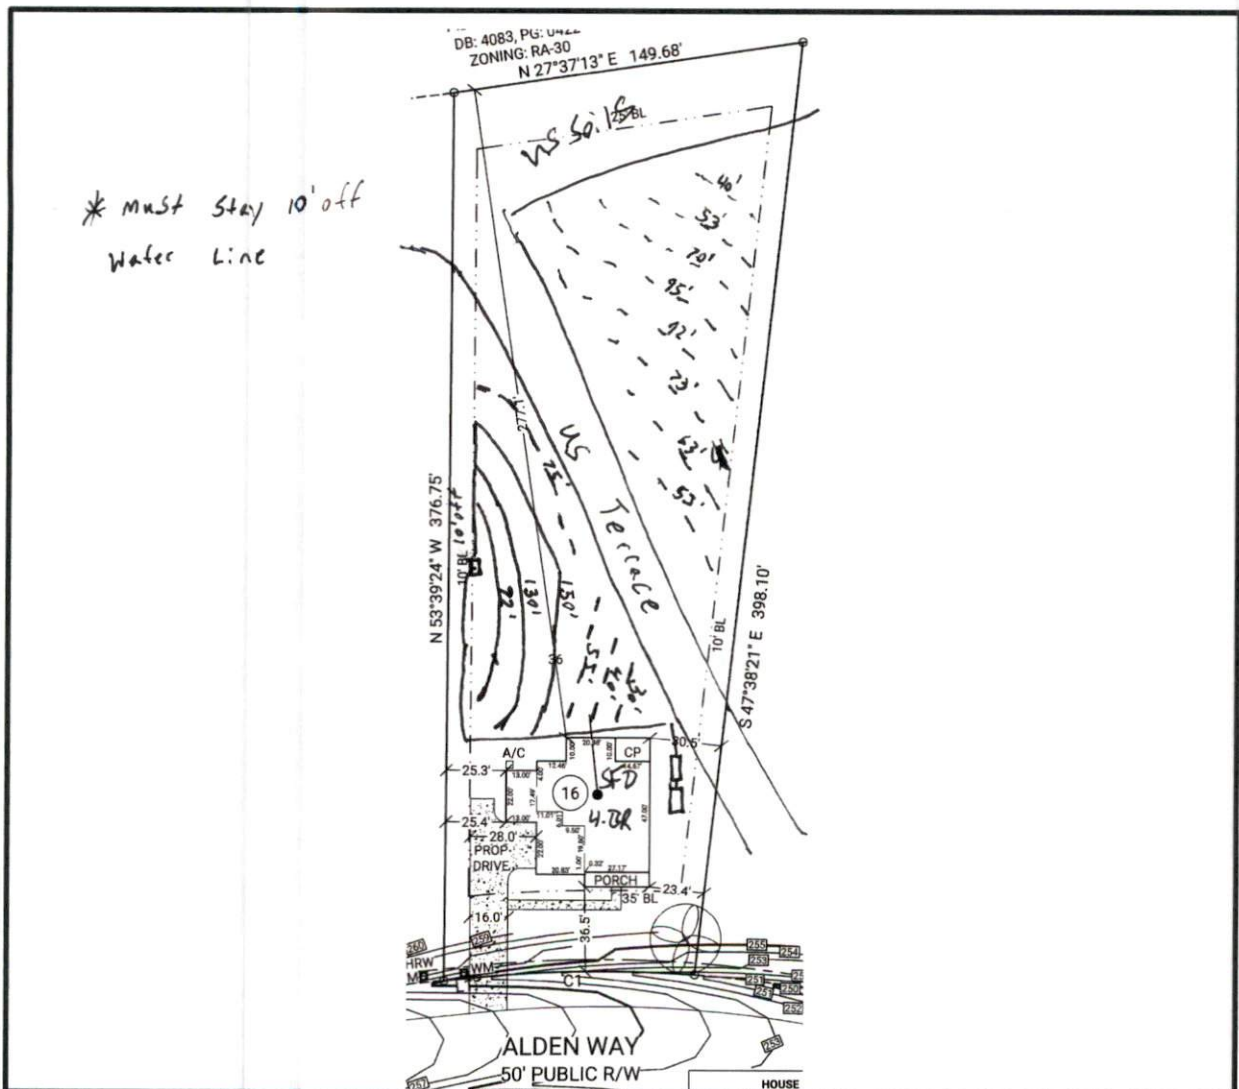 DB: 4083, PG: 0422
ZONING: RA-30
N 27°37'13" E 149.68'
US Soils
25' BL
* Must Stay 10' off
Water Line
40'
53'
70'
95'
92'
73'
63'
53'
277.1'
US
Terrace
75'
N 53°39'24" W 376.75'
10' BL
10' off
72'
130'
150'
36
55'
40'
30'
10' BL
S 47°38'21" E 398.10'
A/C
CP
30.5'
25.3'
16
SFD
4-BR
25.4'
28.0'
PROP.
DRIVE
PORCH
35' BL
23.4'
16.0'
36.5'
260
259
255
254
253
HRW
WM
251
250
252
C1
253
257
ALDEN WAY
50' PUBLIC R/W
HOUSE